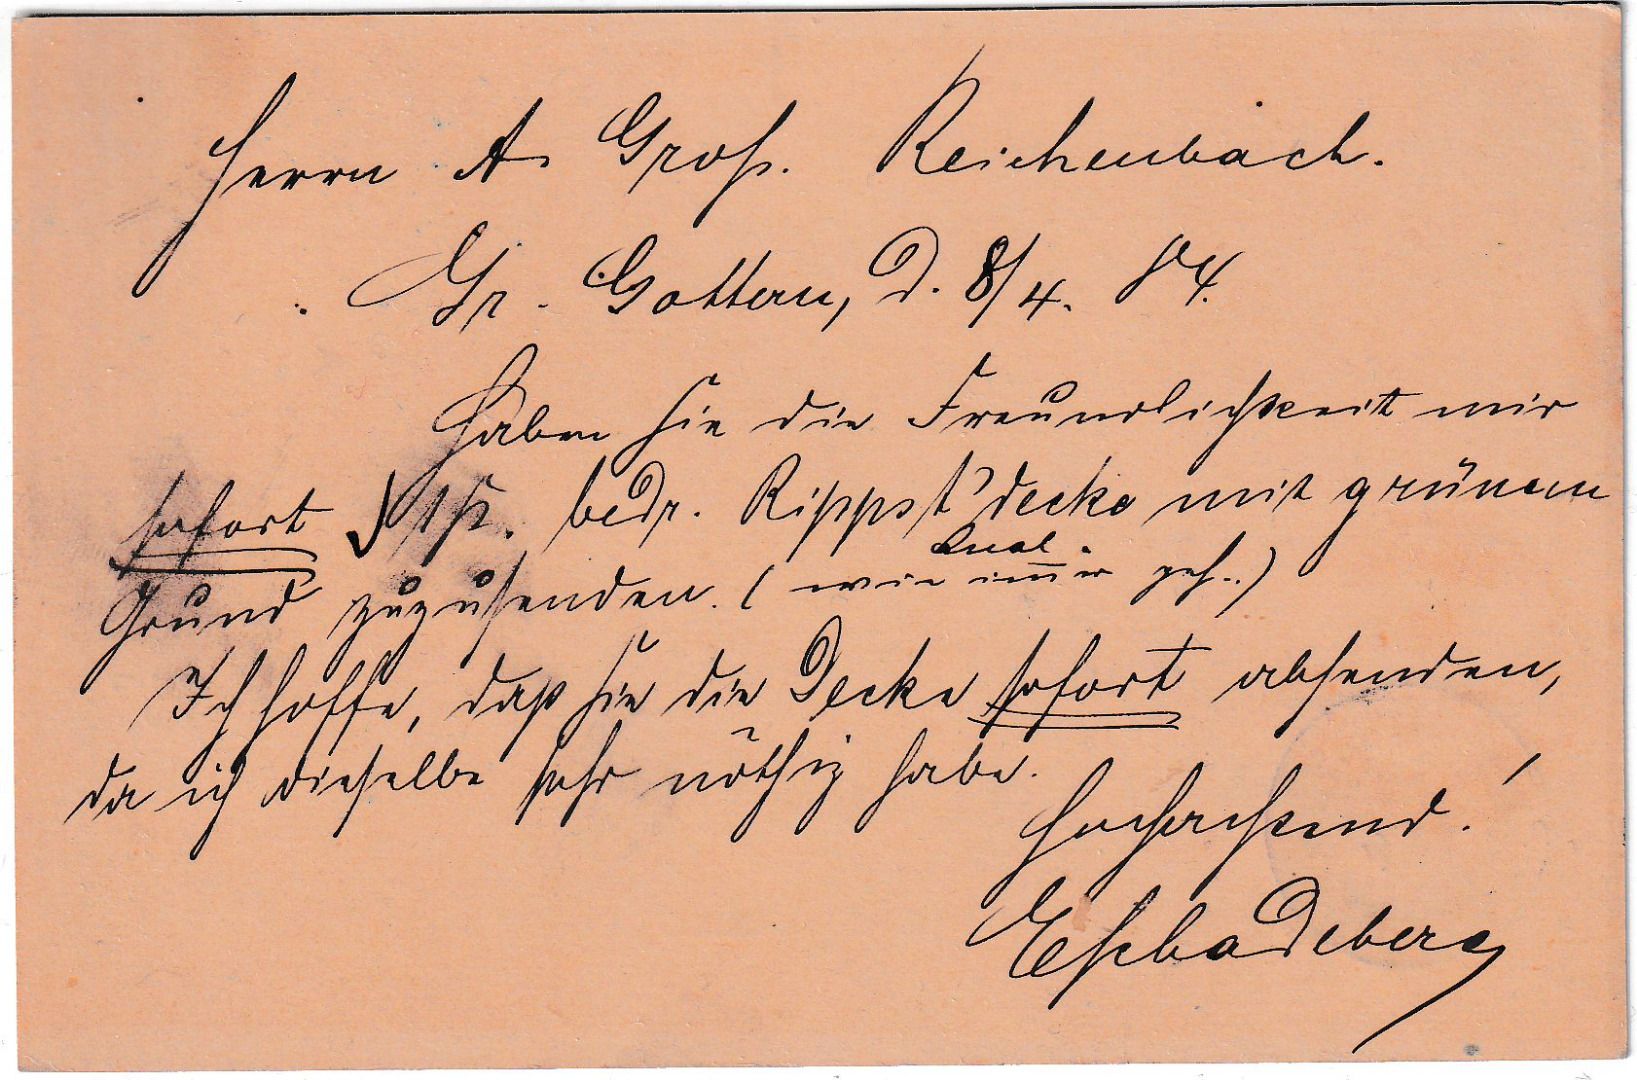 Herrn A. Groß. Reichenbach.
Gr. Gottern, D. 8/4. 84.
Haben Sie die Freundlichkeit mir
sofort 1 St. bedr. Rippsdecke mit grünem
Qual.
Grund zuzusenden. (wie immer geh..)
Ich hoffe, daß Sie die Decke sofort absenden,
da ich dieselbe sehr nöthig habe.
Hochachtend!